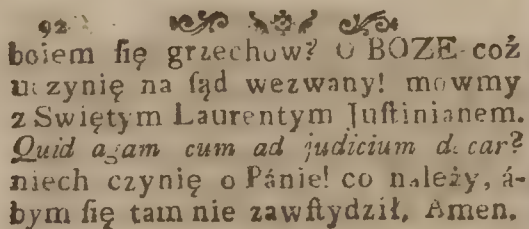 92
boiem ſię grzechow? O BOZE coż
uczynię na ſąd wezwany! mowmy
z Swiętym Laurentym Juſtinianem.
Quid agam cum ad judicium d.car?
niech czynię o Pánie! co należy, á-
bym ſię tam nie zawſtydził, Amen.